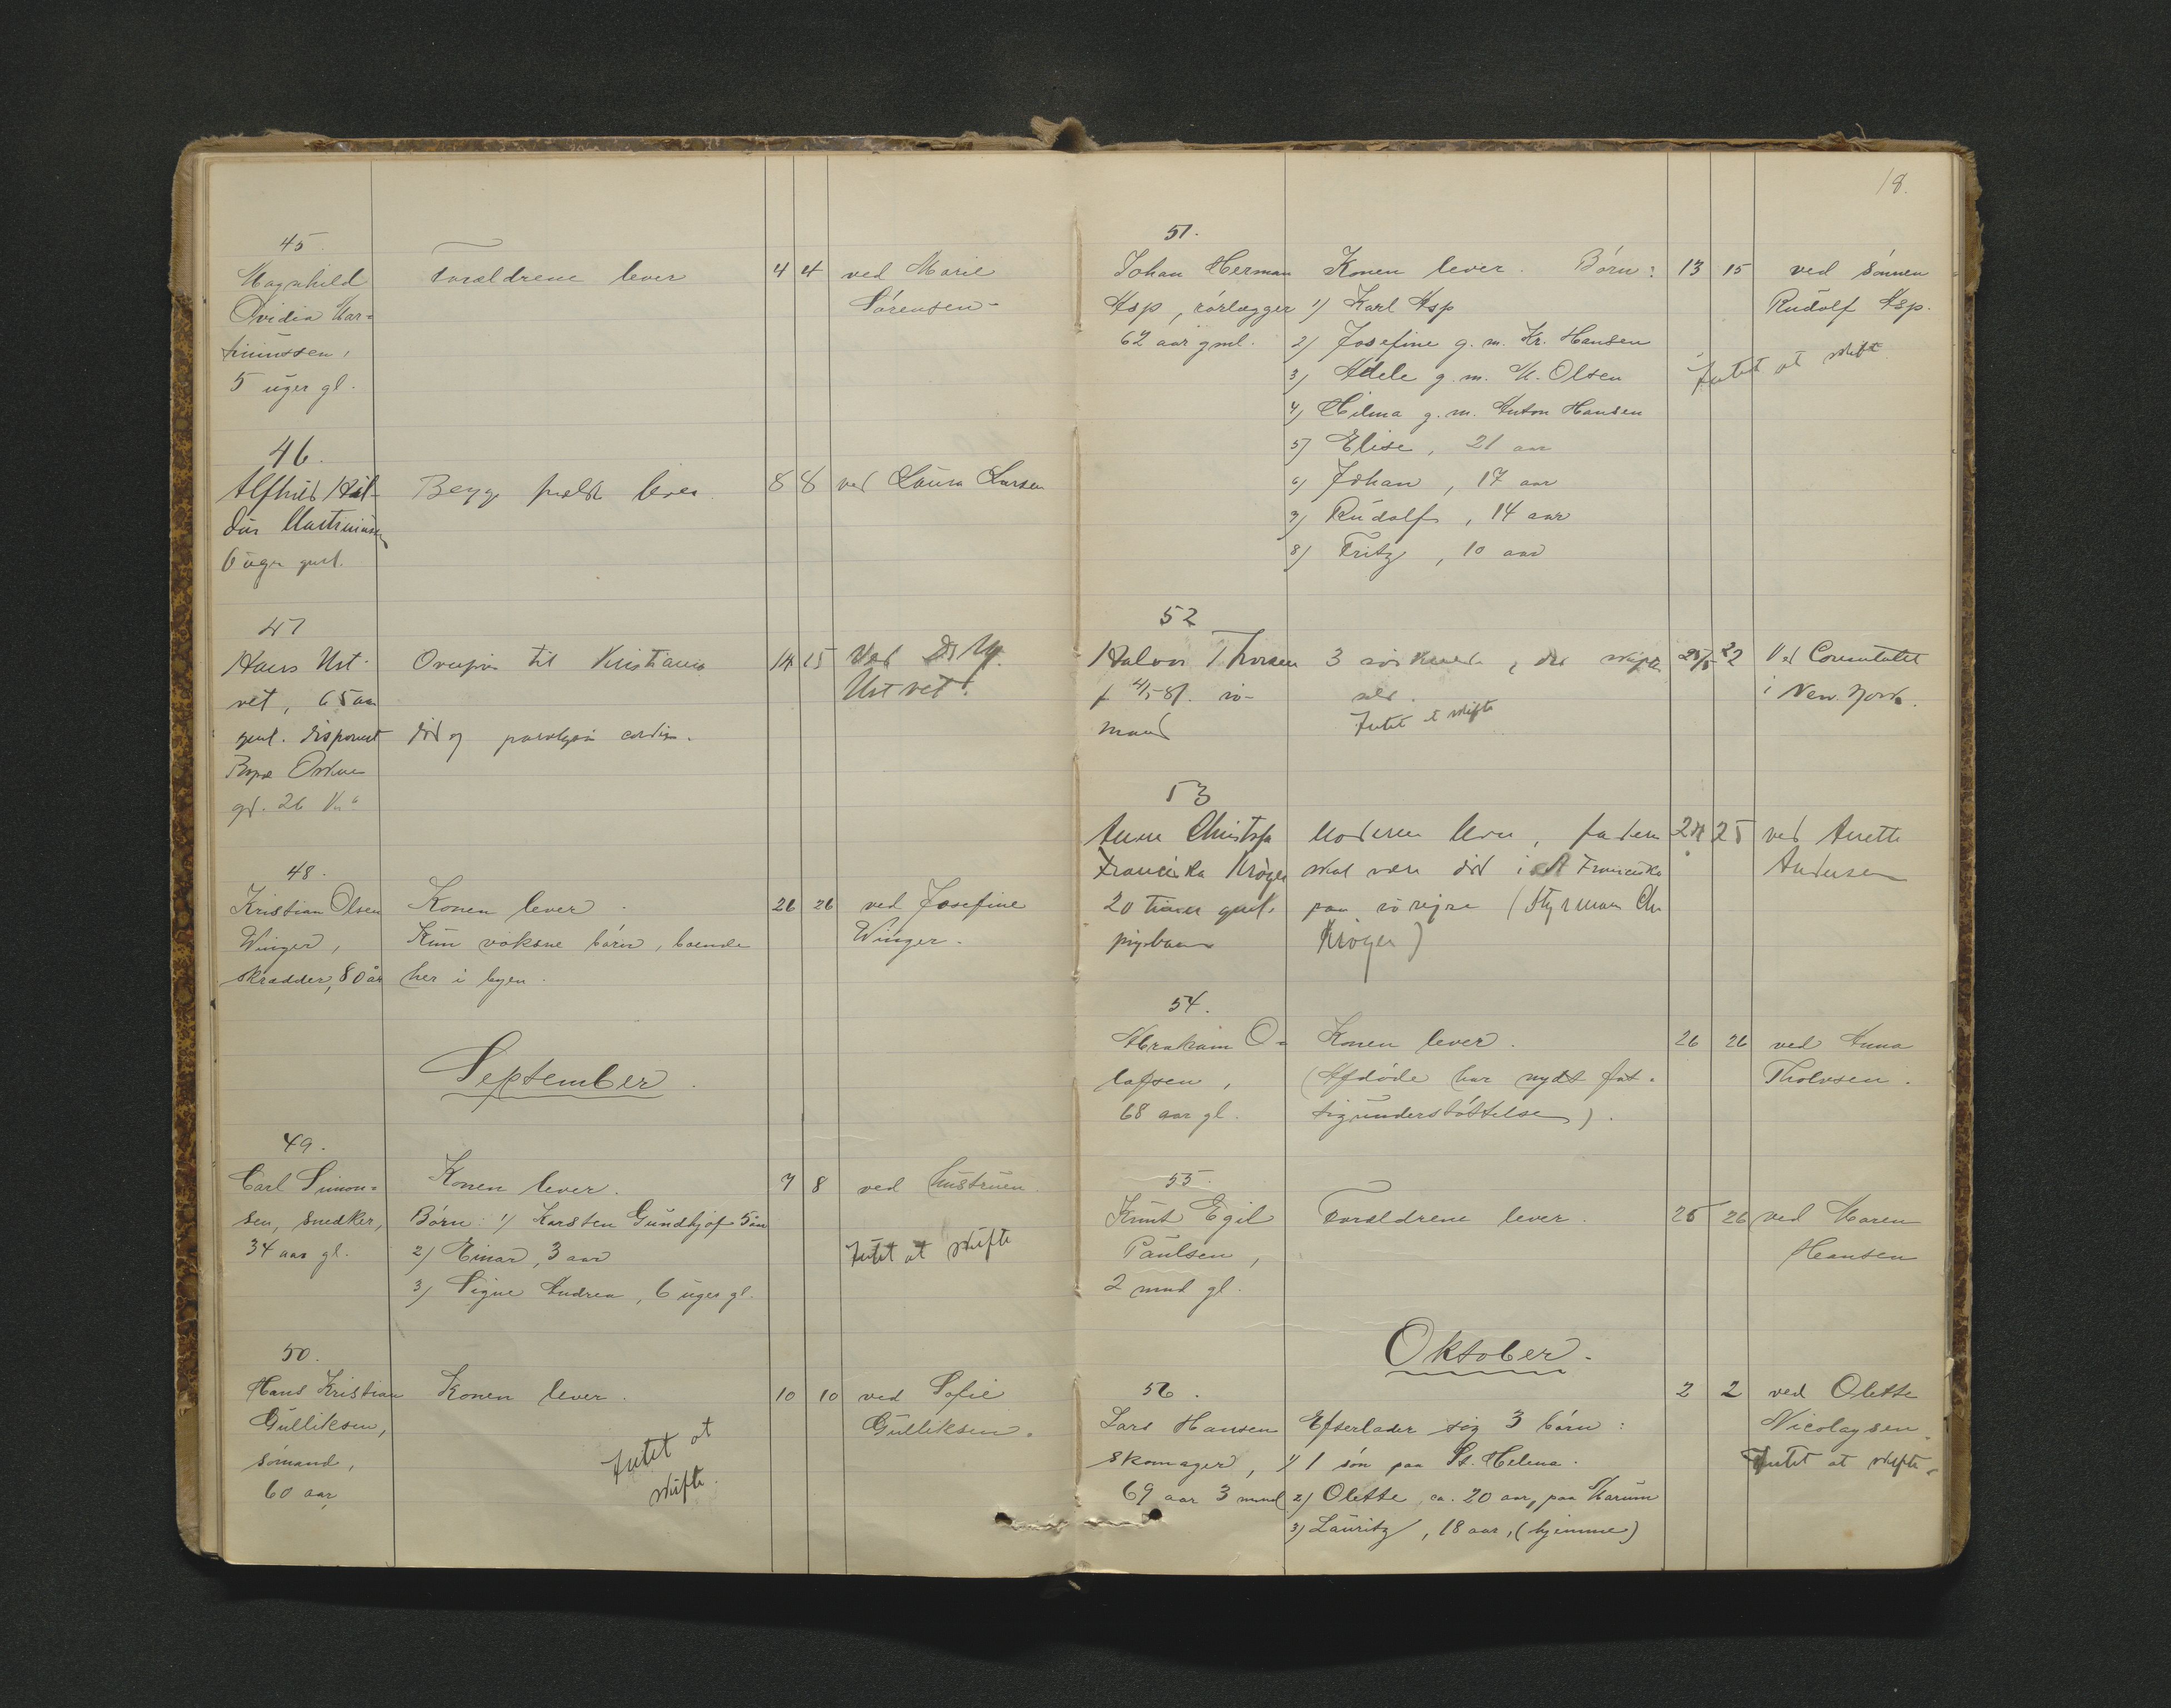 45.
Magnhild Forældrene lever 4 4 ved Marie
Ovidia Mar= Sørensen
tiniussen,
5 uger gl.
46.
Alfhild Begge lever 8 8 ved Laura Larsen
6 uger gml.
47
Hans Ust- til Kristiania 14 15 Ved
vet, 65 aar Ustvet.
gml. død
gd. 26
48.
Kristian Olsen Konen lever. 26 26 ved Josefine
Winger, Kun voksne børn, boende Winger.
skrædder, 80 år her i byen.
September.
49.
Carl Simon= Konen lever. 7 8 ved hustruen
sen, snedker, Børn: 1) Karsten Gundhjof 5 aar
34 aar gl. 2) Einar, 3 aar Intet at skifte
3) Signe Andrea, 6 uger gl.
50.
Hans Kristian Konen lever. 10 10 ved Sofie
Gulliksen, Gulliksen.
sømand, Intet at
60 aar skifte.
18.
51.
Johan Herman Konen lever. Børn: 13 15 ved sønnen
Asp, rørlægger 1) Karl Asp Rudolf Asp.
62 aar gml. 2) Josefine g. m. Kr. Hansen
3) Adele g. m. M. Olsen Intet at skifte
4) Hilma g. m. Anton Hansen
5) Elise, 21 aar
6) Johan, 17 aar
7) Rudolf, 14 aar
8) Fritz, 10 aar
52
Halvor Thorsen 3 søskende, 22 Ved Consulatet
f 4/5-81. sø- i New York.
mand Intet at skifte
53
Anne Moderen lever, faderen 24 25 ved Anette
Franciska Krøger skal være død i St Francisko Andersen
20 timer gml. paa sørejse (Styrmand Chr
pigebarn Krøger)
54.
Abraham O= Konen lever. 26 26 ved Anna
lafsen, (Afdøde har nydt fat= Tholvsen.
68 aar gl. tigunderstøttelse).
55.
Knut Egil Forældrene lever. 25 26 ved Maren
Paulsen, Hansen
2 mnd gl.
Oktober.
56. 2 2 ved Olette
Lars Hansen Efterlader sig 3 børn: Nicolaysen.
skomager, 1) 1 søn paa St. Helena. Intet at skifte.
69 aar 3 mnd 2) Olette, ca. 20 aar, paa
3) Lauritz, 18 aar, (hjemme)